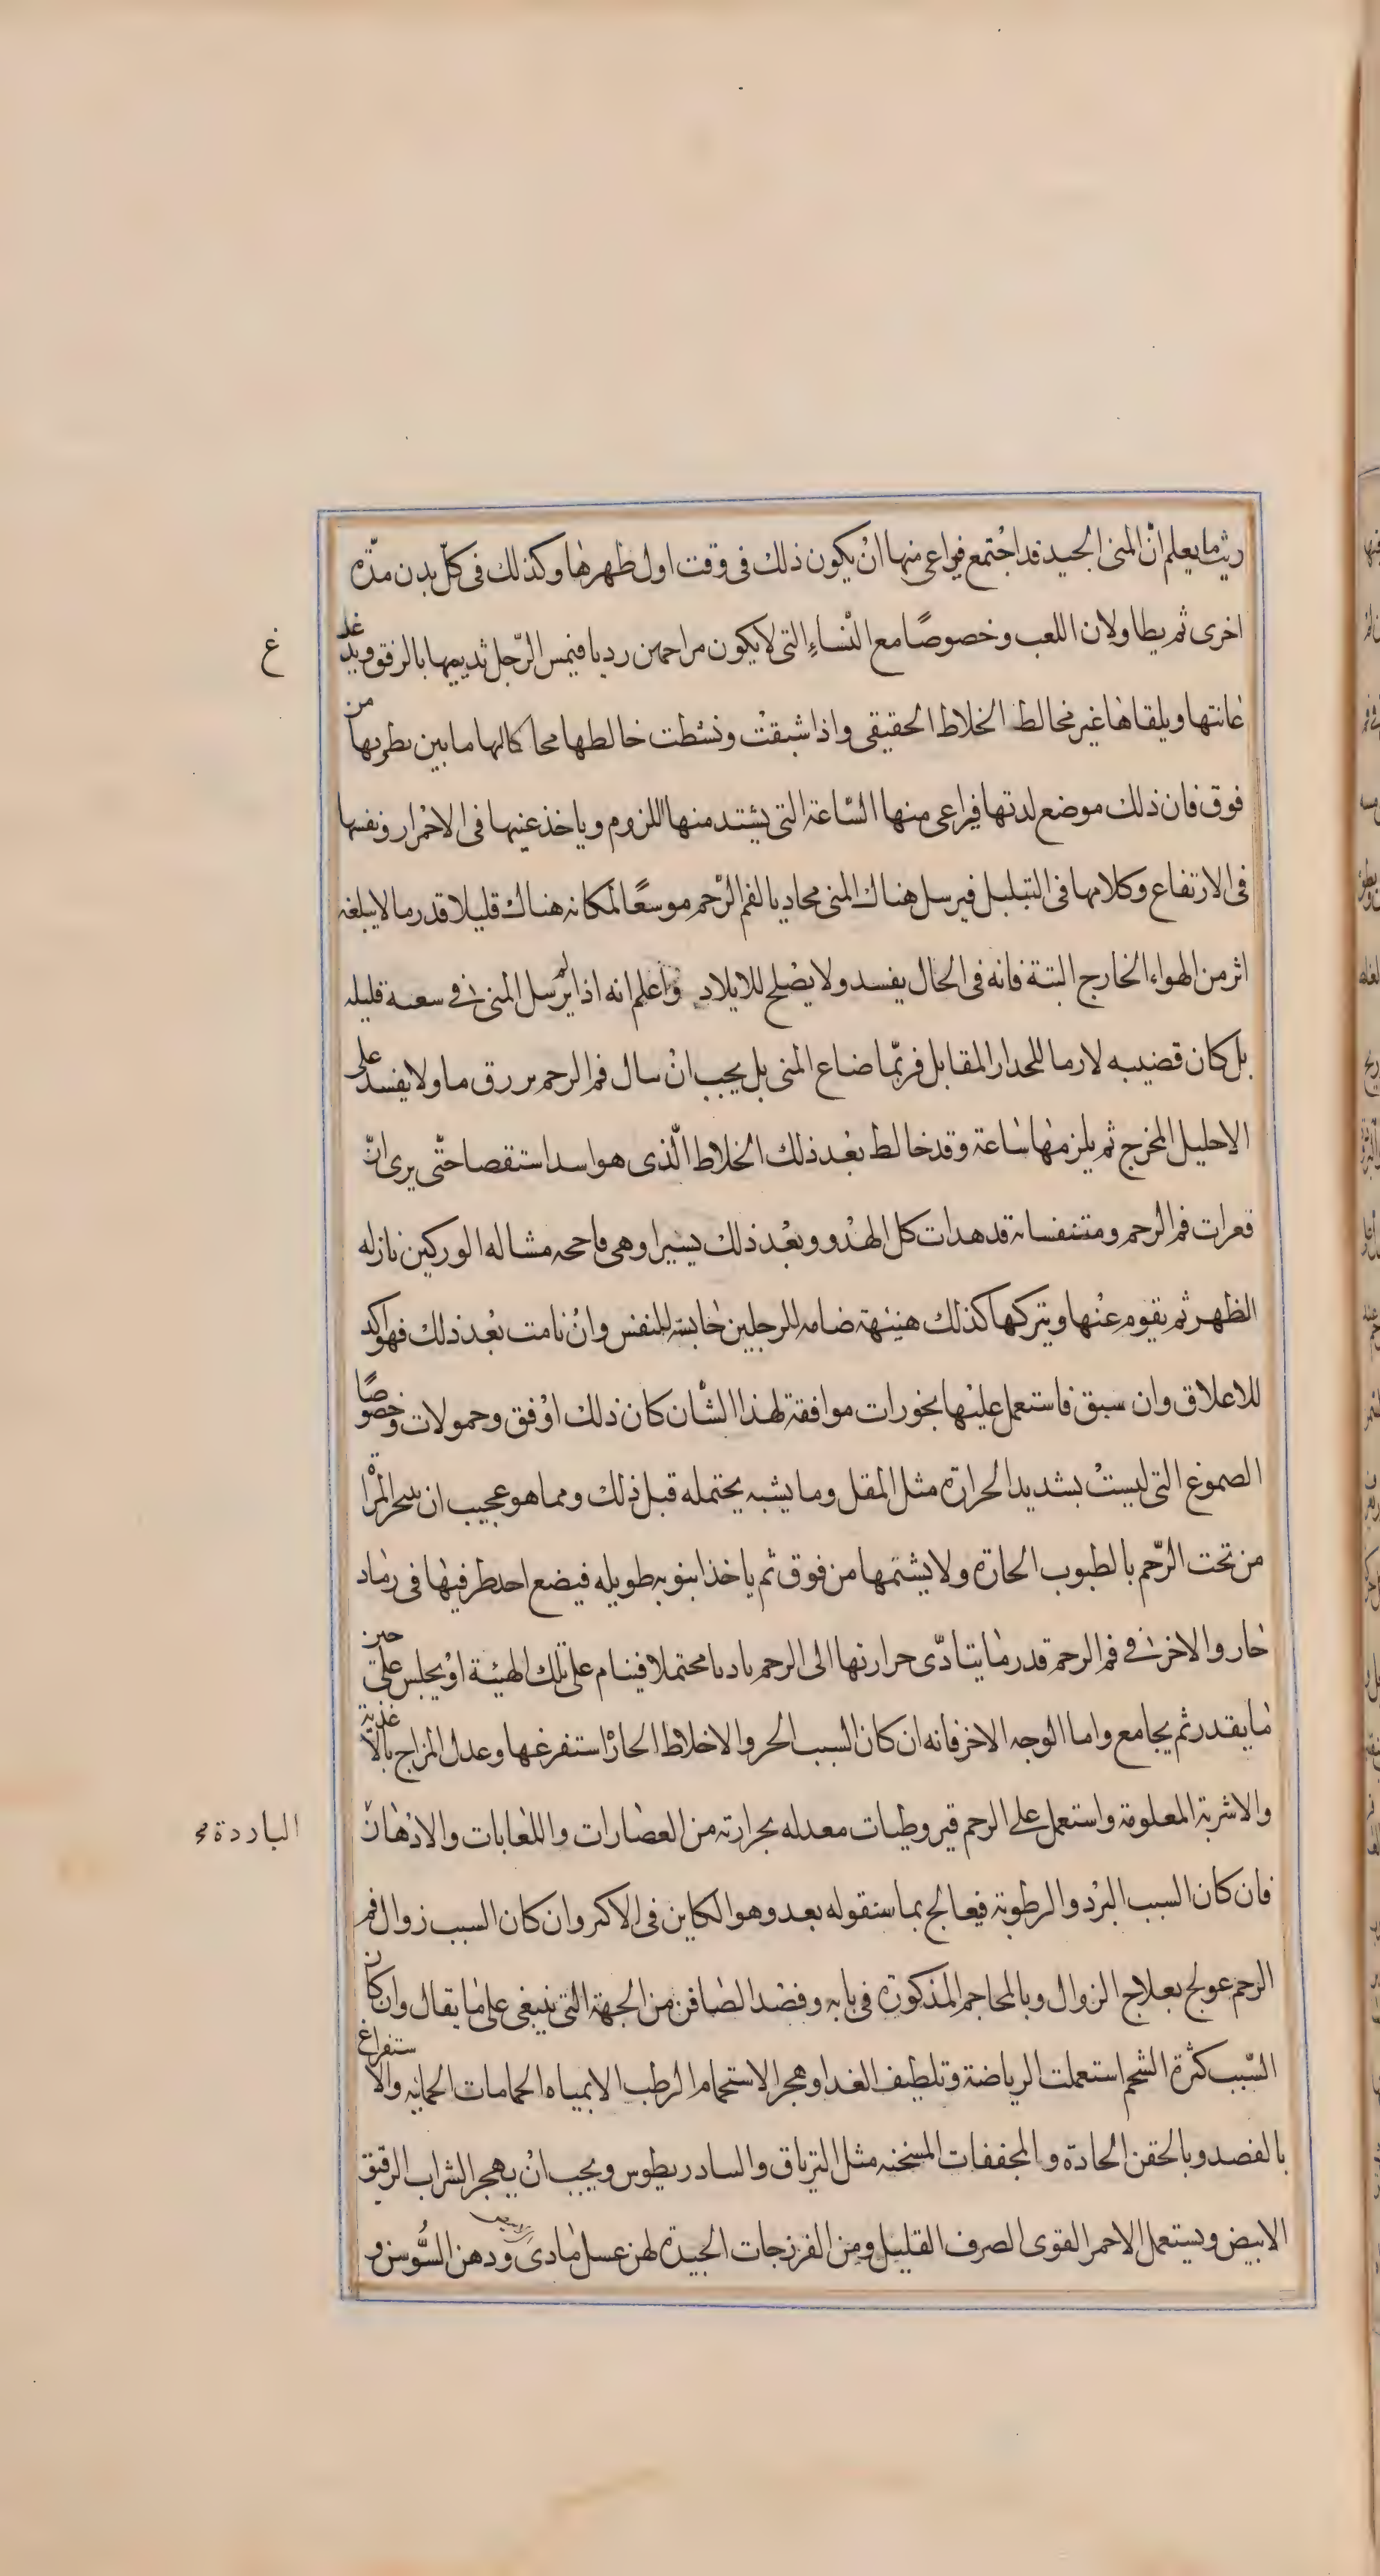 ريثما يعلم انّ المنى الجيد قد اجتمع فيراعى منها انْ يكون ذلك فى وقت اول طهرها وكذلك فى كلّ بدن مدّه
اخرى ثم يطاولان اللعب وخصوصًا مع النّساءِ التى لا يكون مزاجهن رديا فيمس الرّجل ثدييها بالرفق ويدغدغ
غ
عانتها ويلقاها غير مخالط الخلاط الحقيقى واذا شبقتْ ونشطت خالطها محاكا لها ما بين بظرها من
فوق فان ذلك موضع لدتها فيراعى منها السّاعة التى يشتد منها اللزوم وياخذ عنيها فى الاحمرار ونفسها
فى الارتفاع وكلامها فى التبلبل فيرسل هناك المنى محاديا لفم الرّحم موسعًا لمكانه هناك قليلا قدر ما لا يبلغه
اثر من الهواء الخارج البتة فانه فى الحال يفسد ولا يصْلح للايلاد واعلم انه اذا لم يرسل المنى فى سعة قليله
بل كان قضيبه لازما للجدار المقابل فربّما ضاع المنى بل يجب انْ سال فم الرحم بزرق ما ولا يفسد على
الاحليل المخرج ثم يلزمها ساعة وقد خالط بعْد ذلك الخلاط الّذى هو اسد استقصا حتّى يرى انّ
قعرات فم الرحم ومتنفساته قد هدات كل الهدْو وبعْد ذلك يسيرا وهى فاححه مشاله الوركين نازله
الظهر ثم يقوم عنْها ويتركها كذلك هنيئهة ضامه للرجلين حابسه للنفس وانْ نامت بعْد ذلك فهو اكد
للاعلاق وان سبق فاستعمل عليْها بخورات موافقة لهذا الشان كان ذلك اوْفق وحمولات وخصوصًا
الصموغ التى ليستْ بشديد الحرارة مثل المقل وما يشبه يحتمله قبل ذلك ومما هو عجيب ان تتبخر المرْاة
من تحت الرّحم بالطيوب الحارّة ولا يشتمها من فوق ثم ياخذ انبوبه طويله فيضع احد طرفيها فى رماد
حار والاخر فى فم الرحم قدر ما يتادّى حرارتها الى الرحم باديا محتملا فينام على تلك الهيئة اوْ يجلس على حين
ما يقدر ثم يجامع واما الوجه الاخر فانه ان كان السبب الحر والاخلاط الحارّْ استفرغها وعدل المزاج بالاغذية
والاشربة المعلومة واستعمل على الرحم قيروطيات معدله بحرارته من العصارات واللعابات والادهان
الباردة صح
فان كان السبب البرْد والرطوبة فيعالج بما سنقوله بعد وهو الكاين فى الاكثر وان كان السبب زوال فم
الرحم عولج بعلاج الزوال وبالمحاجم المذكورة فى بابه وفصْد الصافن من الجهة التى ينبغى على ما يقال وان كان
السّبب كثرة الشحم استعملت الرياضة وتلطيف الغدا وهجر الاستحمام الرطب الا بمياه الحمامات الحمايه والاستفراغ
بالفصد وبالحقن الحادة والمجففات المسخنه مثل الترياق والسادريطوس ويجب انْ يهجر الشراب الرقيق
الابيض ويستعمل الاحمر القوى الصرف القليل ومن الفرزجات الجيدة لهن عسل مادى ودهن السُّوسن و